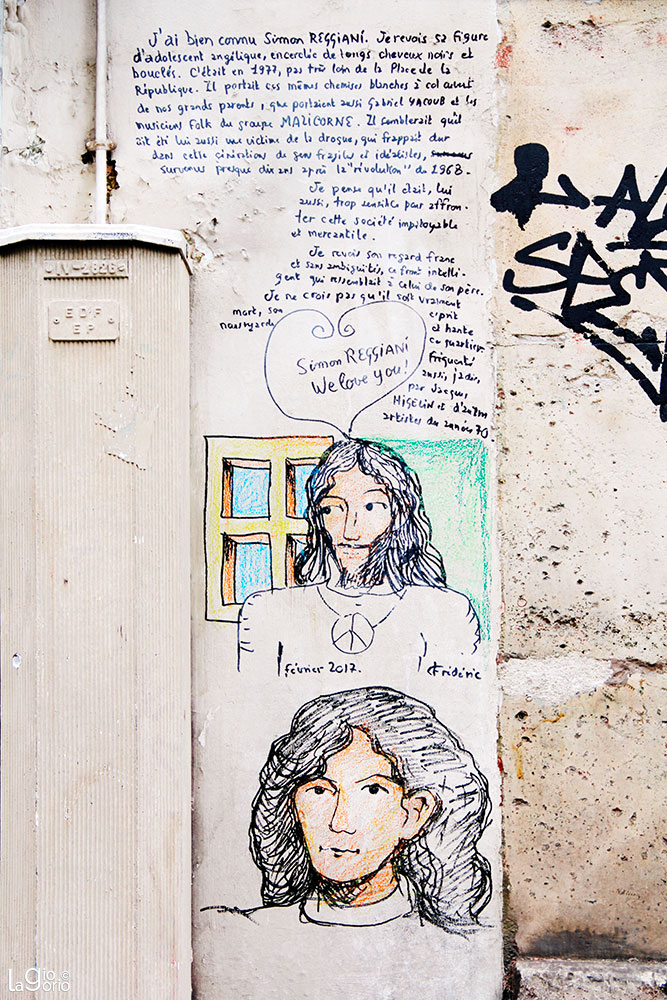 J'ai bien connu Simon REGGIANI. Je revois sa figure
d'adolescent angélique, encerclée de longs cheveux noirs et
bouclés. C'était en 1977, pas très loin de la Place de la
République. Il portait ces mêmes chemises blanches à col
de nos grands parents, que portaient aussi Gabriel YACOUB et les
musiciens folk du groupe MALICORNE. Il semblerait qu'il
ait été lui aussi une victime de la drogue, qui frappait dur
dans cette génération de gens fragiles et idéalistes,
survenue presque dix ans après la "révolution" de 1968.
Je pense qu'il était, lui
aussi, trop sensible pour affron-
ter cette société impitoyable
et mercantile.
Je revois son regard franc
et sans ambiguités, ce front intelli-
gent qui ressemblait à celui de son père.
Je ne crois pas qu'il soit vraiment
mort, son esprit
nous regarde et hante
ce quartier
fréquenté
aussi, jadis,
par Jacques
HIGELIN et d'autres
artistes des années 70
Simon REGGIANI
We love you!
Février 2017. Frédéric
IV-2628
EDF
EP
LaGio©
Gorio